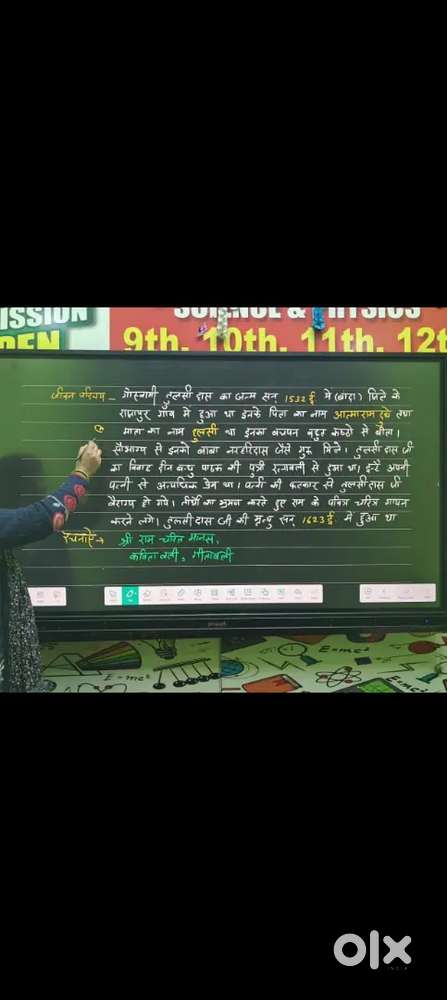 ISSION
SCIENCE & PHYSICS
OPEN
9th, 10th, 11th, 12t
जीवन परिचय - गोस्वामी तुलसीदास का जन्म सन् 1532 ई में (बांदा) जिले के
राजापुर गाँव में हुआ था इनके पिता का नाम आत्माराम दुबे तथा
माता का नाम तुलसी था इनका बचपन बहुत कष्टो से बीता।
सौभाग्य से इनको बाबा नरहरिदास जैसे गुरु मिले। तुलसीदास जी
का विवाह दीन बन्धु पाठक की पुत्री रत्नावली से हुआ था। इन्हें अपनी
पत्नी से अत्यधिक प्रेम था। पत्नी की फटकार से तुलसीदास जी
वैराग्य हो गये। तीर्थो का भ्रमण करते हुए राम के पवित्र चरित्र गायन
करने लगे। तुलसीदास जी की मृत्यु सन् 1623 ई में हुआ था
रचनाऐं → श्री राम चरित मानस,
कवितावली, गीतावली
E=mc²
E=mc²
olx
INDIA